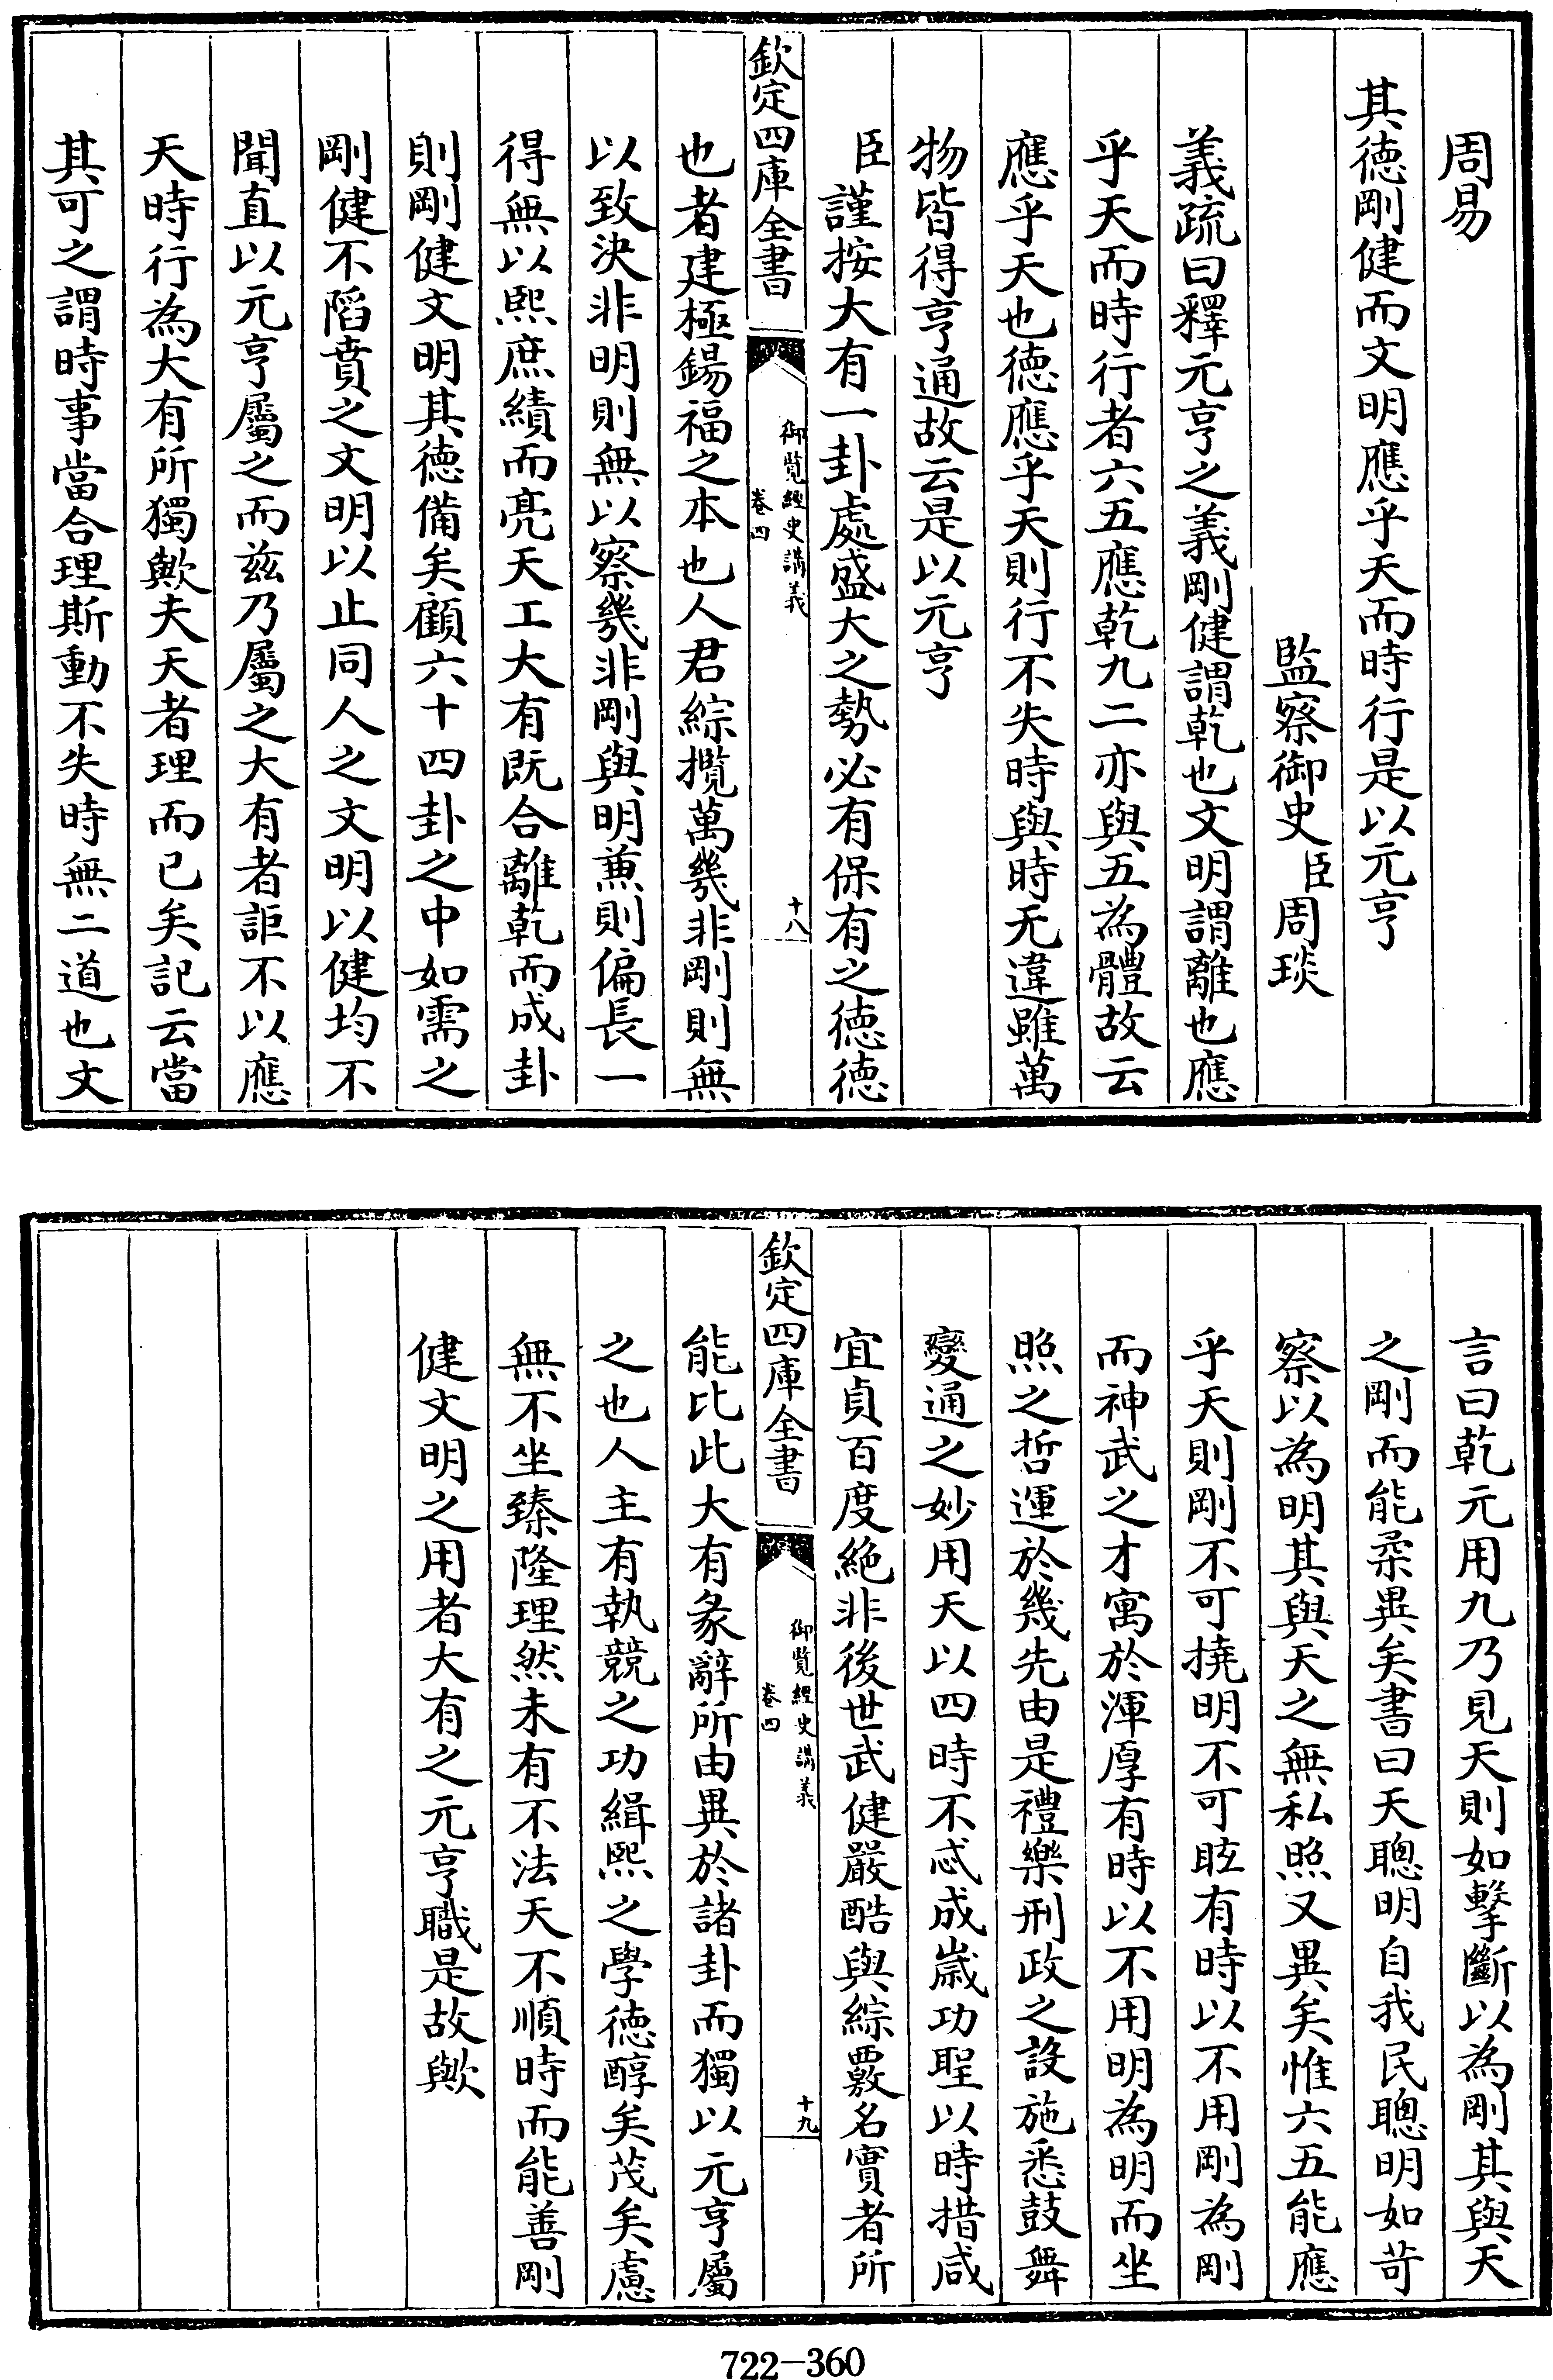 周易
其徳剛健而文明應乎天而時行是以元亨
監察御史臣周琰
義疏曰釋元亨之義剛健謂乾也文明謂離也應
乎天而時行者六五應乾九二亦與五為體故云
應乎天也徳應乎天則行不失時與時无違雖萬
物皆得亨通故云是以元亨
臣謹按大有一卦處盛大之勢必有保有之徳徳
欽定四庫全書
御覧經史講義
卷四
十八
也者建極錫福之本也人君綜攬萬幾非剛則無
以致決非明則無以察幾非剛與明兼則偏長一
得無以熙庶績而亮天工大有既合離乾而成卦
則剛健文明其徳備矣顧六十四卦之中如需之
剛健不陷賁之文明以止同人之文明以健均不
聞直以元亨屬之而兹乃屬之大有者詎不以應
天時行為大有所獨歟夫天者理而已矣記云當
其可之謂時事當合理斯動不失時無二道也文
言曰乾元用九乃見天則如擊斷以為剛其與天
之剛而能柔異矣書曰天聰明自我民聰明如苛
察以為明其與天之無私照又異矣惟六五能應
乎天則剛不可撓明不可眩有時以不用剛為剛
而神武之才寓於渾厚有時以不用明為明而坐
照之哲運於幾先由是禮樂刑政之設施悉鼓舞
變通之妙用天以四時不忒成嵗功聖以時措咸
宜貞百度絶非後世武健嚴酷與綜覈名實者所
欽定四庫全書
御覧經史講義
卷四
十九
能比此大有彖辭所由異於諸卦而獨以元亨屬
之也人主有執競之功緝熙之學徳醇矣茂矣慮
無不坐臻隆理然未有不法天不順時而能善剛
健文明之用者大有之元亨職是故歟
722-360